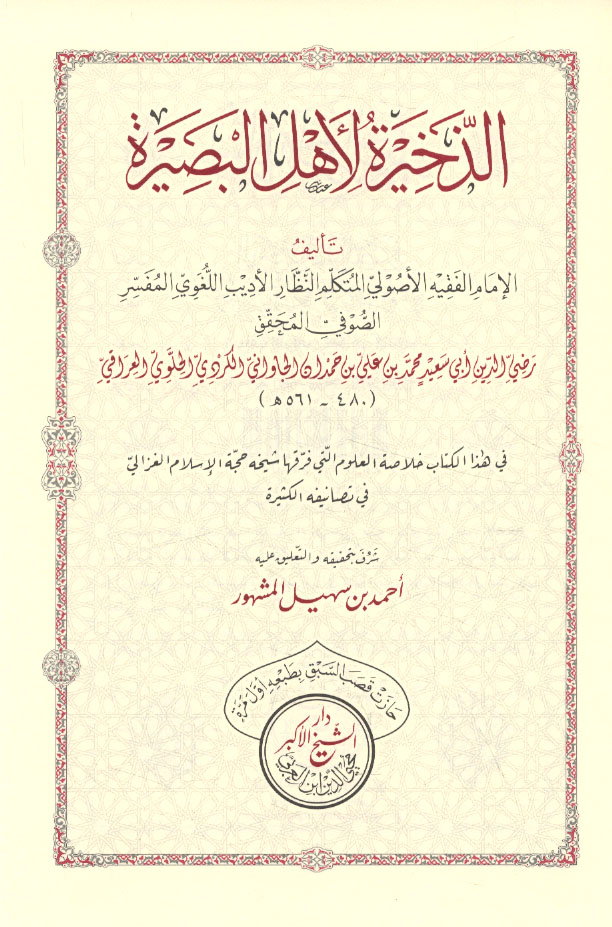 الذَّخِيرَةُ لِأَهْلِ الْبَصِيرَةِ
تَأليفُ
الإمَامِ الفَقِيهِ الأُصُوليِّ المُتَكَلِّمِ النَّظَّارِ الأَدِيبِ اللُّغَوِيِّ المُفَسِّرِ
الصُّوفيِّ المُحَقِّقِ
رَضِيِّ الدِّينِ أَبي سَعِيدٍ محمَّدِ بنِ عَليِّ بنِ حَمْدَان الجَاوَانيِّ الكُرْدِيِّ الحِلَّوِيِّ العِرَاقيِّ
(٤٨٠ - ٥٦١ هـ)
في هٰذا الكتاب خلاصة العلوم الّتي فرّقها شيخه حجّة الإسلام الغزاليّ
في تصانيفه الكثيرة
شَرُفَ بتحقيقه والتّعليق عليه
أحمد بن سهيل المشهور
حَازَتْ قَصَبَ السَّبْقِ بِطَبْعِهِ أَوَّلَ مَرَّةٍ
دار
الشَّيخ الأكبر
محيي الدين ابن العربي